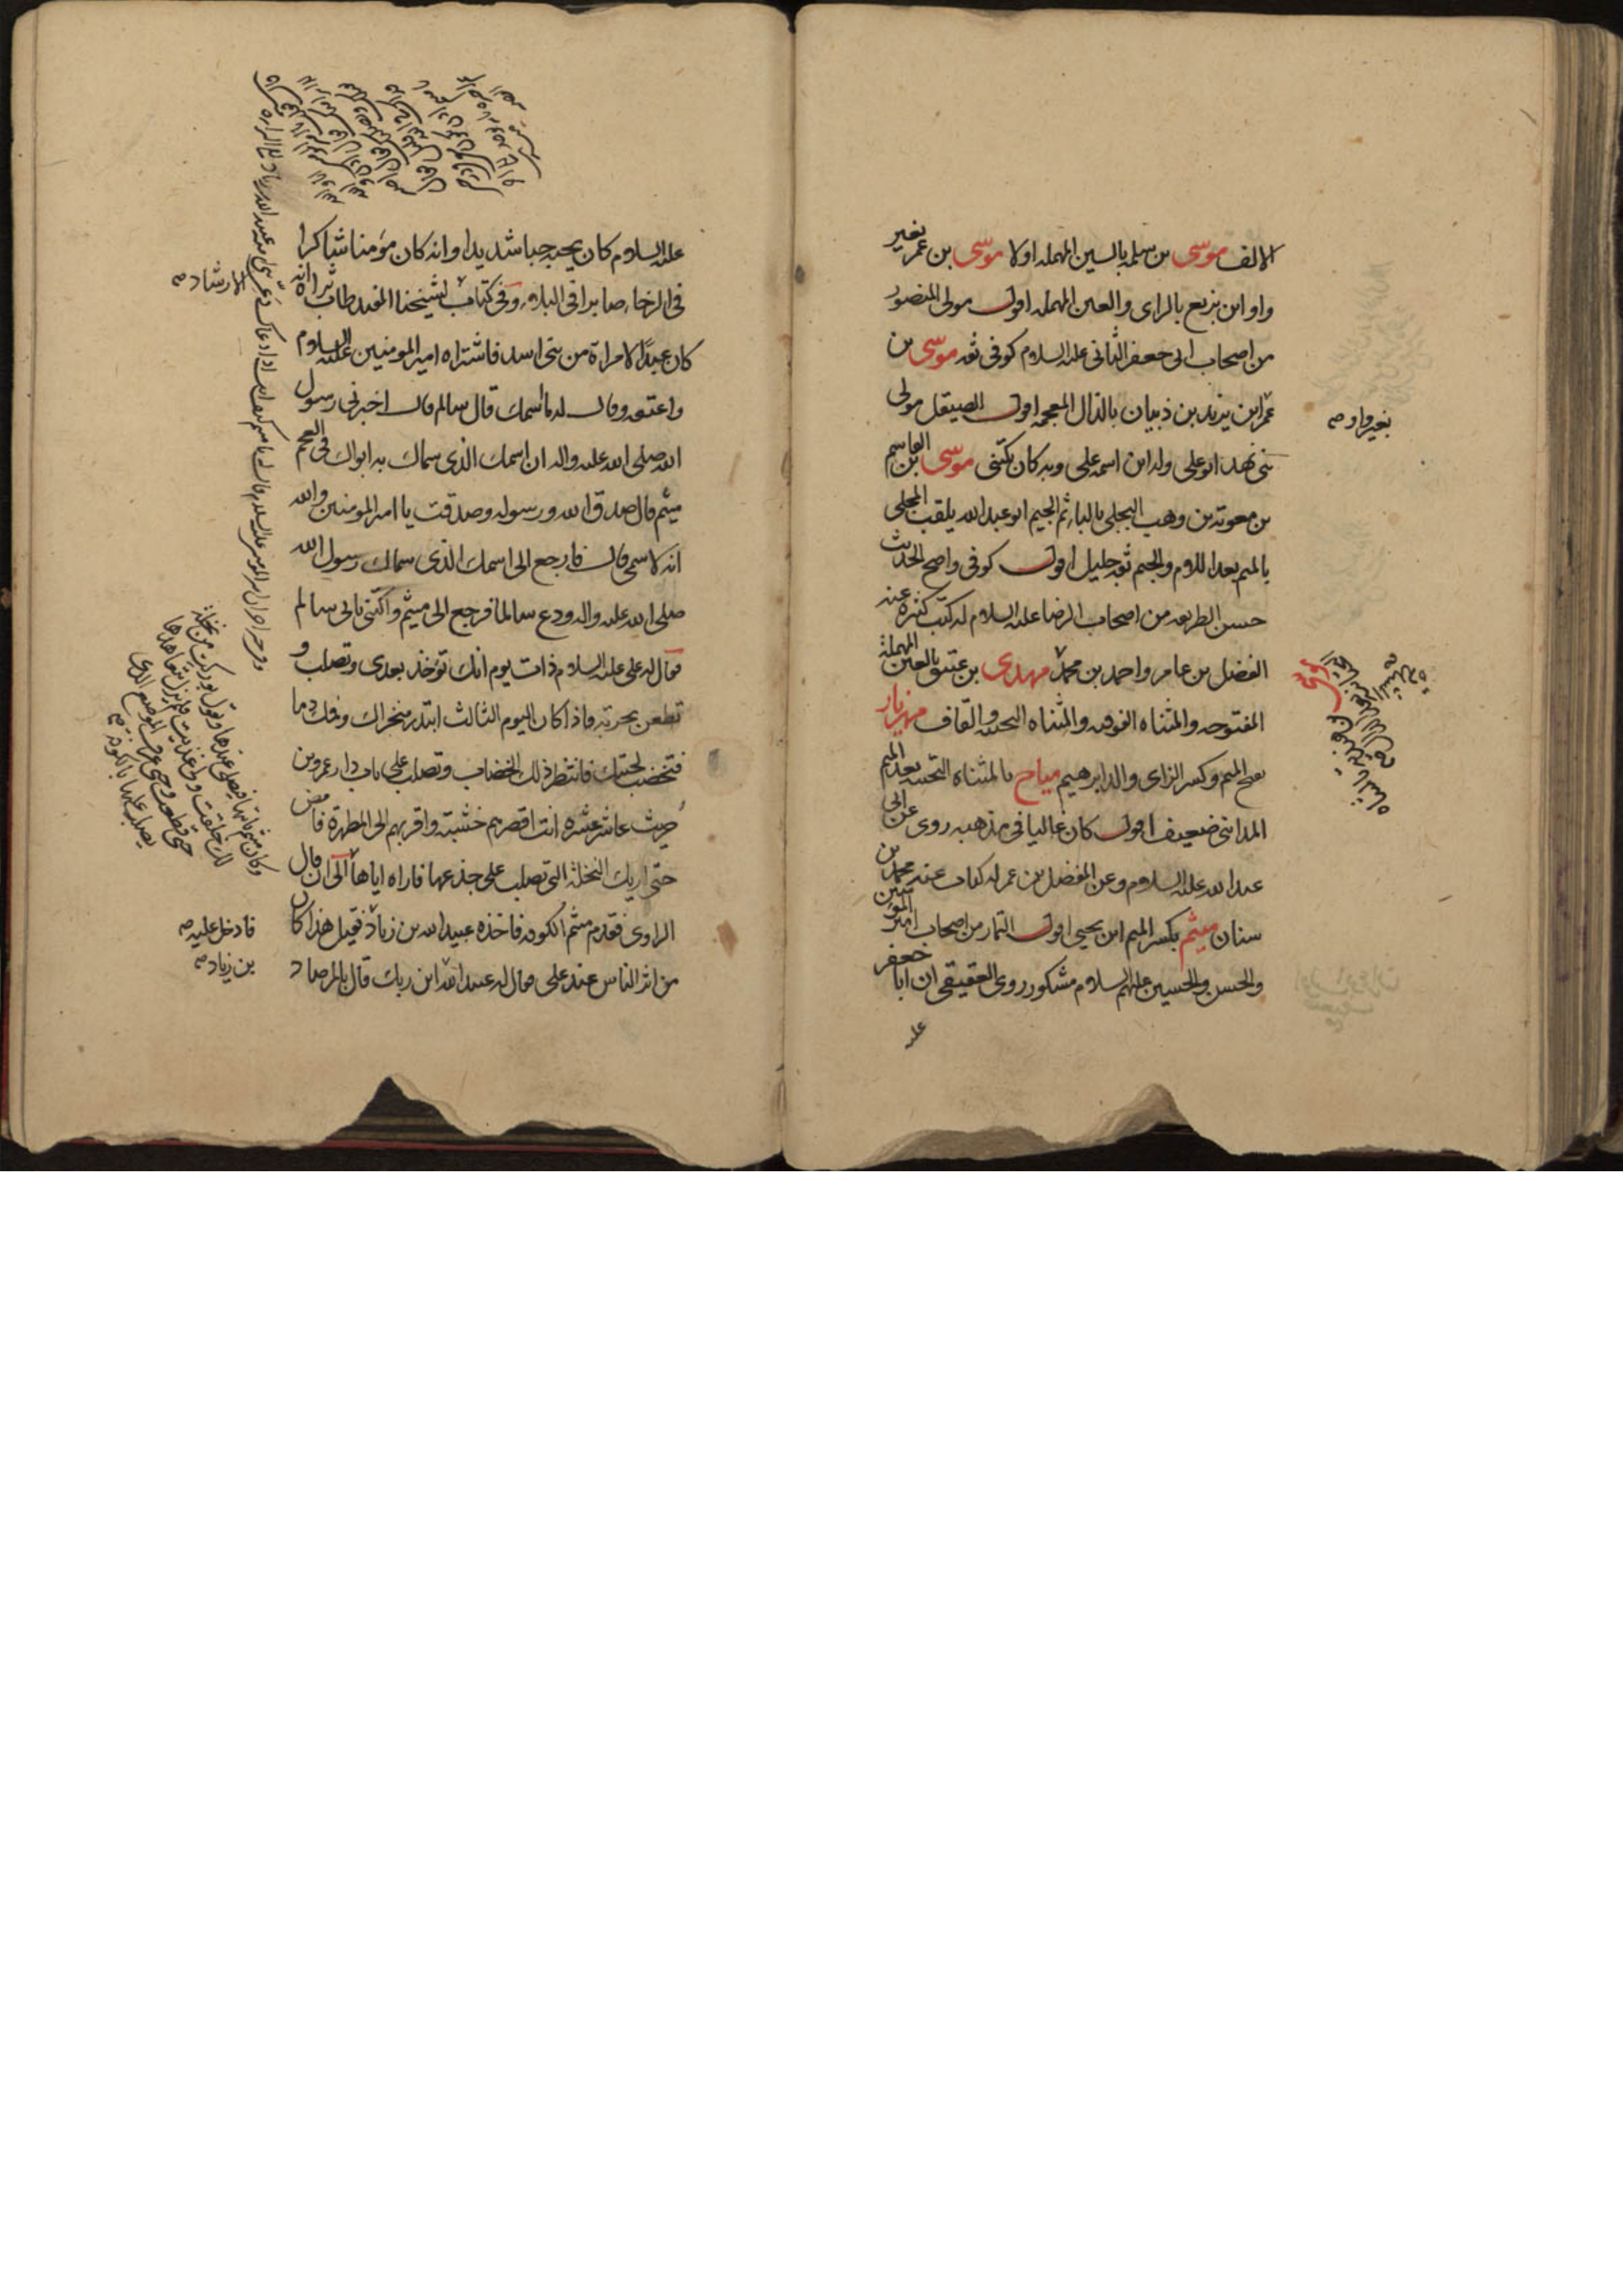 الالف موسى بن سلمه بالسين المهمله اولا موسى بن عمر بغير
واو ابن بزيع بالزاى والعين المهمله اقول مولى المنصور
من اصحاب ابى جعفر الثانى عليه السلام كوفى ثقه موسى بن
عمر ابن يزيد بن ذبيان بالذال المعجمه اقول الصيقل مولى
بنى نهد ابو على وله ابن اسمه على وبه كان يكنى موسى بن القاسم
بن معويه بن وهب البجلى بالباء ثم الجيم ابو عبد الله يلقب المجلى
بالميم بعد اللام والجيم ثقه جليل اقول كوفى واضح الحديث
حسن الطريقه من اصحاب الرضا عليه السلام له كتب كثيره عنه
الفضل بن عامر واحمد بن محمد مهدى بن عتيق بالعين المهملة
المفتوحه والمثناه الفوقيه والمثناه التحتيه والقاف مهزيار
بفتح الميم وكسر الزاى والد ابرهيم مياح بالمثناه التحتيه بعد الميم
المدائنى ضعيف اقول كان غاليا فى مذهبه روى عن ابى
عبد الله عليه السلام وعن المفضل بن عمر له كتاب عنه محمد بن
سنان ميثم بكسر الميم ابن يحيى اقول التمار من اصحاب امير المؤمنين
والحسن والحسين عليهم السلام مشكور روى العقيقى ان ابا جعفر
عليه
بغير واو صح
عليه السلام كان يحبه حبا شديدا وانه كان مؤمنا شاكرا
فى الرخاء صابرا فى البلاء وفى كتاب لشيخنا المفيد طاب ثراه انه
كان عبدا لامراة من بنى اسد فاشتراه امير المومنين عليه السلام
واعتقه وقال له ما اسمك قال سالم قال اخبرنى رسول
الله صلى الله عليه واله ان اسمك الذى سماك به ابواك فى العجم
ميثم قال صدق الله ورسوله وصدقت يا امير المومنين والله
انه لاسمى قال فارجع الى اسمك الذى سماك رسول الله
صلى الله عليه واله ودع سالما فرجع الى ميثم واكتنى بابى سالم
فقال له على عليه السلام ذات يوم انك تؤخذ بعدى وتصلب و
تطعن بحربة فاذا كان اليوم الثالث ابتدر منخراك وفمك دما
فتخضب لحيتك فانتظر ذلك الخضاب وتصلب على باب دار عمرو بن
حريث عاشر عشره انت اقصرهم خشبة واقربهم الى المطهرة فامض
حتى اريك النخلة التى تصلب على جذعها فاراه اياها الى ان قال
الراوى فقدم ميثم الكوفه فاخذه عبيد الله بن زياد فقيل هذا كان
من اثر الناس عند على فقال له عبيد الله اين ربك قال بالمرصاد
الارشاد صح
وكان ميثم ياتيها فيصلى عندها ويقول بوركت من نخلة
لك خلقت ولى غذيت فلم يزل يتعاهدها
حتى قطعت وحتى عرف الموضع الذى
يصلب عليها بالكوفة صح
فادخل عليه صح
بن زياد صح